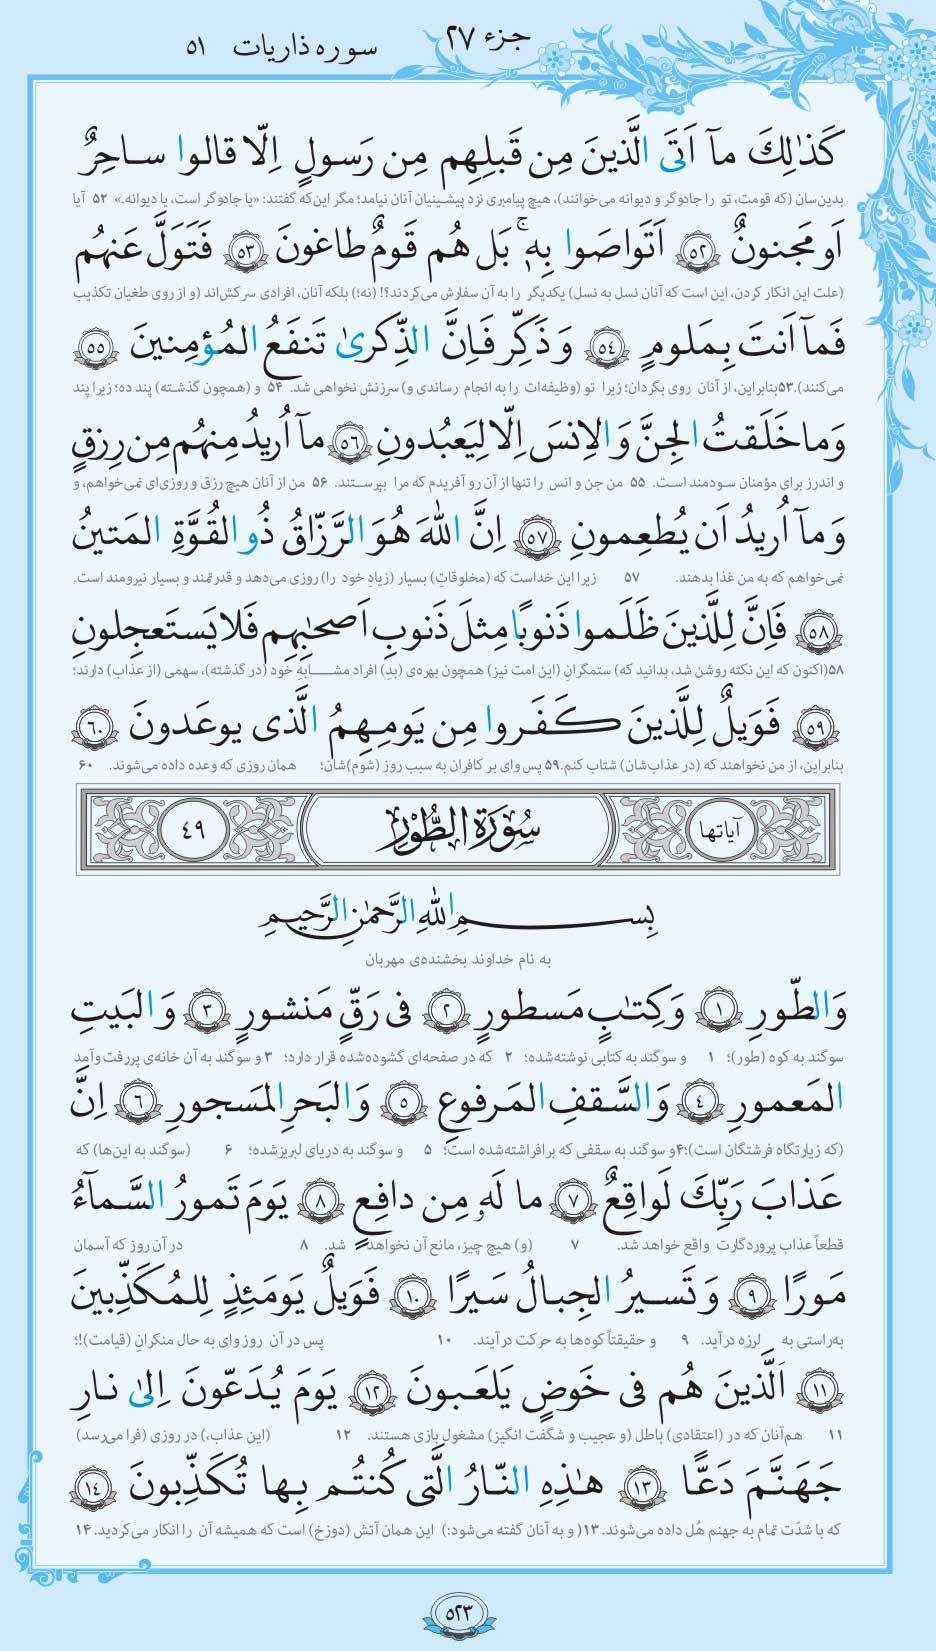 جزء ۲۷
سوره ذاریات ۵۱
كَذٰلِكَ مآ اَتَى الَّذينَ مِن قَبلِهِم مِن رَسولٍ اِلّا قالوا ساحِرٌ
بدین‌سان (که قومت، تو را جادوگر و دیوانه می‌خوانند)، هیچ پیامبری نزد پیشینیان آنان نیامد؛ مگر این‌که گفتند: «یا جادوگر است، یا دیوانه.» ۵۲ آیا
اَو مَجنونٌ ﴿۵۲﴾ اَتَواصَوا بِهٖۚ بَل هُم قَومٌ طاغونَ ﴿۵۳﴾ فَتَوَلَّ عَنهُم
(علت این انکار کردن، این است که آنان نسل به نسل) یکدیگر را به آن سفارش می‌کردند؟! (نه؛) بلکه آنان، افرادی سرکش‌اند (و از روی طغیان تکذیب
فَمآ اَنتَ بِمَلومٍ ﴿۵۴﴾ وَ ذَكِّر فَاِنَّ الذِّكرىٰ تَنفَعُ المُؤمِنينَ ﴿۵۵﴾
می‌کنند).۵۳بنابراین، از آنان روی بگردان؛ زیرا تو (وظیفه‌ات را به انجام رساندی و) سرزنش نخواهی شد. ۵۴ و (همچون گذشته) پند ده؛ زیرا پند
وَ ما خَلَقتُ الجِنَّ وَ الاِنسَ اِلّا لِيَعبُدونِ ﴿۵۶﴾ مآ اُريدُ مِنهُم مِن رِزقٍ
و اندرز برای مؤمنان سودمند است. ۵۵ من جن و انس را تنها از آن رو آفریدم که مرا بپرستند. ۵۶ من از آنان هیچ رزق و روزی‌ای نمی‌خواهم، و
وَ مآ اُريدُ اَن يُطعِمونِ ﴿۵۷﴾ اِنَّ اللّٰهَ هُوَ الرَّزّاقُ ذُو القُوَّةِ المَتينُ
نمی‌خواهم که به من غذا بدهند. ۵۷ زیرا این خداست که (مخلوقاتِ) بسیار (زیادِ خود را) روزی می‌دهد و قدرتمند و بسیار نیرومند است.
﴿۵۸﴾ فَاِنَّ لِلَّذينَ ظَلَموا ذَنوبًا مِثلَ ذَنوبِ اَصحٰبِهِم فَلا يَستَعجِلونِ
۵۸(اکنون که این نکته روشن شد، بدانید که) ستمگرانِ (این امت نیز) همچون بهره‌ی (بدِ) افراد مشابهِ خود (در گذشته)، سهمی (از عذاب) دارند؛
﴿۵۹﴾ فَوَيلٌ لِلَّذينَ كَفَروا مِن يَومِهِمُ الَّذى يوعَدونَ ﴿۶۰﴾
بنابراین، از من نخواهند که (در عذاب‌شان) شتاب کنم.۵۹ پس وای بر کافران به سبب روز (شوم)شان؛ همان روزی که وعده داده می‌شوند. ۶۰
آیاتها سُورَةُ الطُّورِ ۴۹
بِسمِ اللّٰهِ الرَّحمٰنِ الرَّحيمِ
به نام خداوند بخشنده‌ی مهربان
وَ الطّورِ ﴿۱﴾ وَ كِتٰبٍ مَسطورٍ ﴿۲﴾ فى رَقٍّ مَنشورٍ ﴿۳﴾ وَ البَيتِ
سوگند به کوه (طور)؛ ۱ و سوگند به کتابی نوشته‌شده؛ ۲ که در صفحه‌ای گشوده‌شده قرار دارد؛ ۳ و سوگند به آن خانه‌ی پررفت‌وآمد
المَعمورِ ﴿۴﴾ وَ السَّقفِ المَرفوعِ ﴿۵﴾ وَ البَحرِ المَسجورِ ﴿۶﴾ اِنَّ
(که زیارتگاه فرشتگان است)؛۴و سوگند به سقفی که برافراشته‌شده است؛ ۵ و سوگند به دریای لبریزشده؛ ۶ (سوگند به این‌ها) که
عَذابَ رَبِّكَ لَواقِعٌ ﴿۷﴾ ما لَهٗ مِن دافِعٍ ﴿۸﴾ يَومَ تَمورُ السَّمآءُ
قطعاً عذاب پروردگارت واقع خواهد شد. ۷ (و) هیچ چیز، مانع آن نخواهد شد. ۸ در آن روز که آسمان
مَورًا ﴿۹﴾ وَ تَسيرُ الجِبالُ سَيرًا ﴿۱۰﴾ فَوَيلٌ يَومَئِذٍ لِلمُكَذِّبينَ
به‌راستی به لرزه درآید. ۹ و حقیقتاً کوه‌ها به حرکت درآیند. ۱۰ پس در آن روز وای به حال منکرانِ (قیامت)!؛
﴿۱۱﴾ اَلَّذينَ هُم فى خَوضٍ يَلعَبونَ ﴿۱۲﴾ يَومَ يُدَعّونَ اِلىٰ نارِ
۱۱ هم‌آنان که در (اعتقادی) باطل (و عجیب و شگفت انگیز) مشغول بازی هستند. ۱۲ (این عذاب،) در روزی (فرا می‌رسد)
جَهَنَّمَ دَعًّا ﴿۱۳﴾ هٰذِهِ النّارُ الَّتى كُنتُم بِها تُكَذِّبونَ ﴿۱۴﴾
که با شدّت تمام به جهنم هُل داده می‌شوند. ۱۳( و به آنان گفته می‌شود:) این همان آتش (دوزخ) است که همیشه آن را انکار می‌کردید. ۱۴
۵۲۳